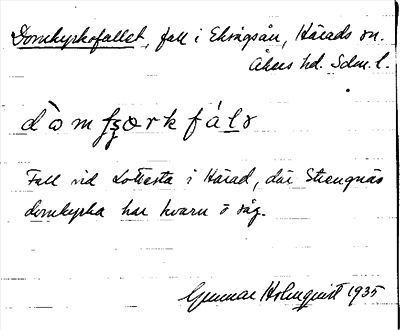 Domkyrkofallet, fall i Eksågsån, Härads sn.
Åkers hd. Sdm. l.
dòmfʒœrkfálə
Fall vid Lottesta i Härad, där Strengnäs
domkyrka har kvarn o såg.
Gunnar Holmquist 1935